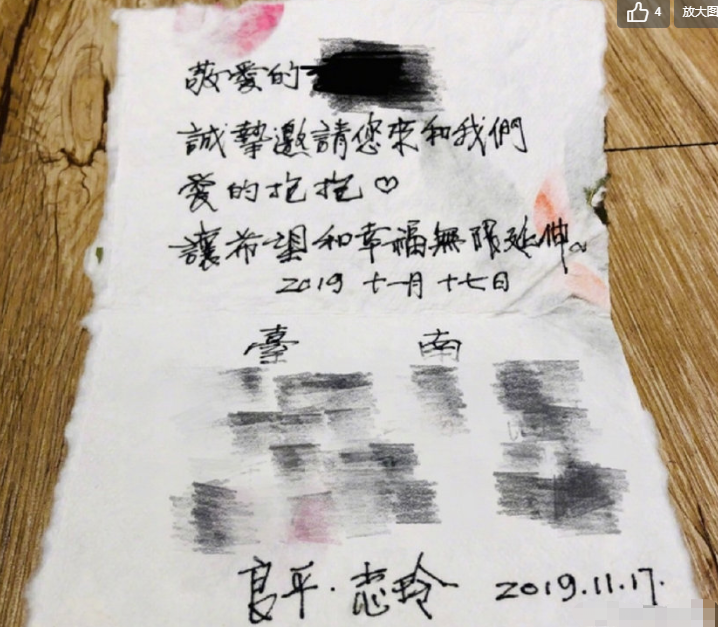 4 放大图
敬愛的
誠摯邀請您來和我們
愛的抱抱♡
讓希望和幸福無限延伸。
2019 十一月 十七日
臺 南
良平·志玲 2019.11.17.